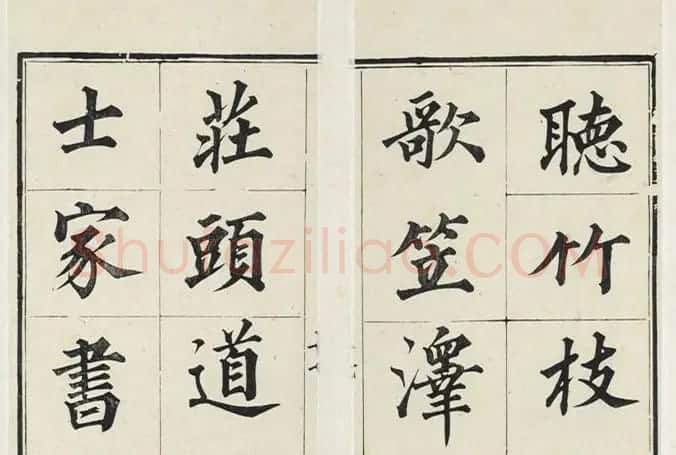 聽竹枝
歌笠澤
莊頭道
士家書
Shufaziliao.COM